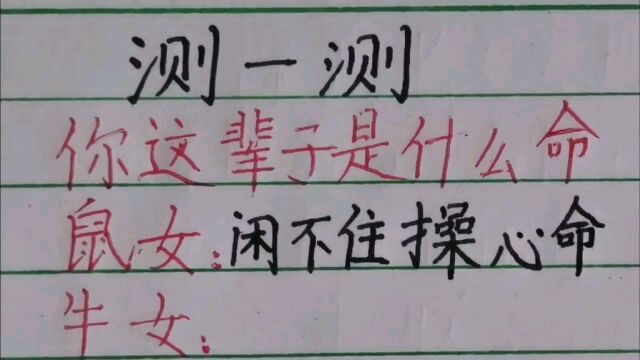 测一测
你这辈子是什么命
鼠女:闲不住操心命
牛女: